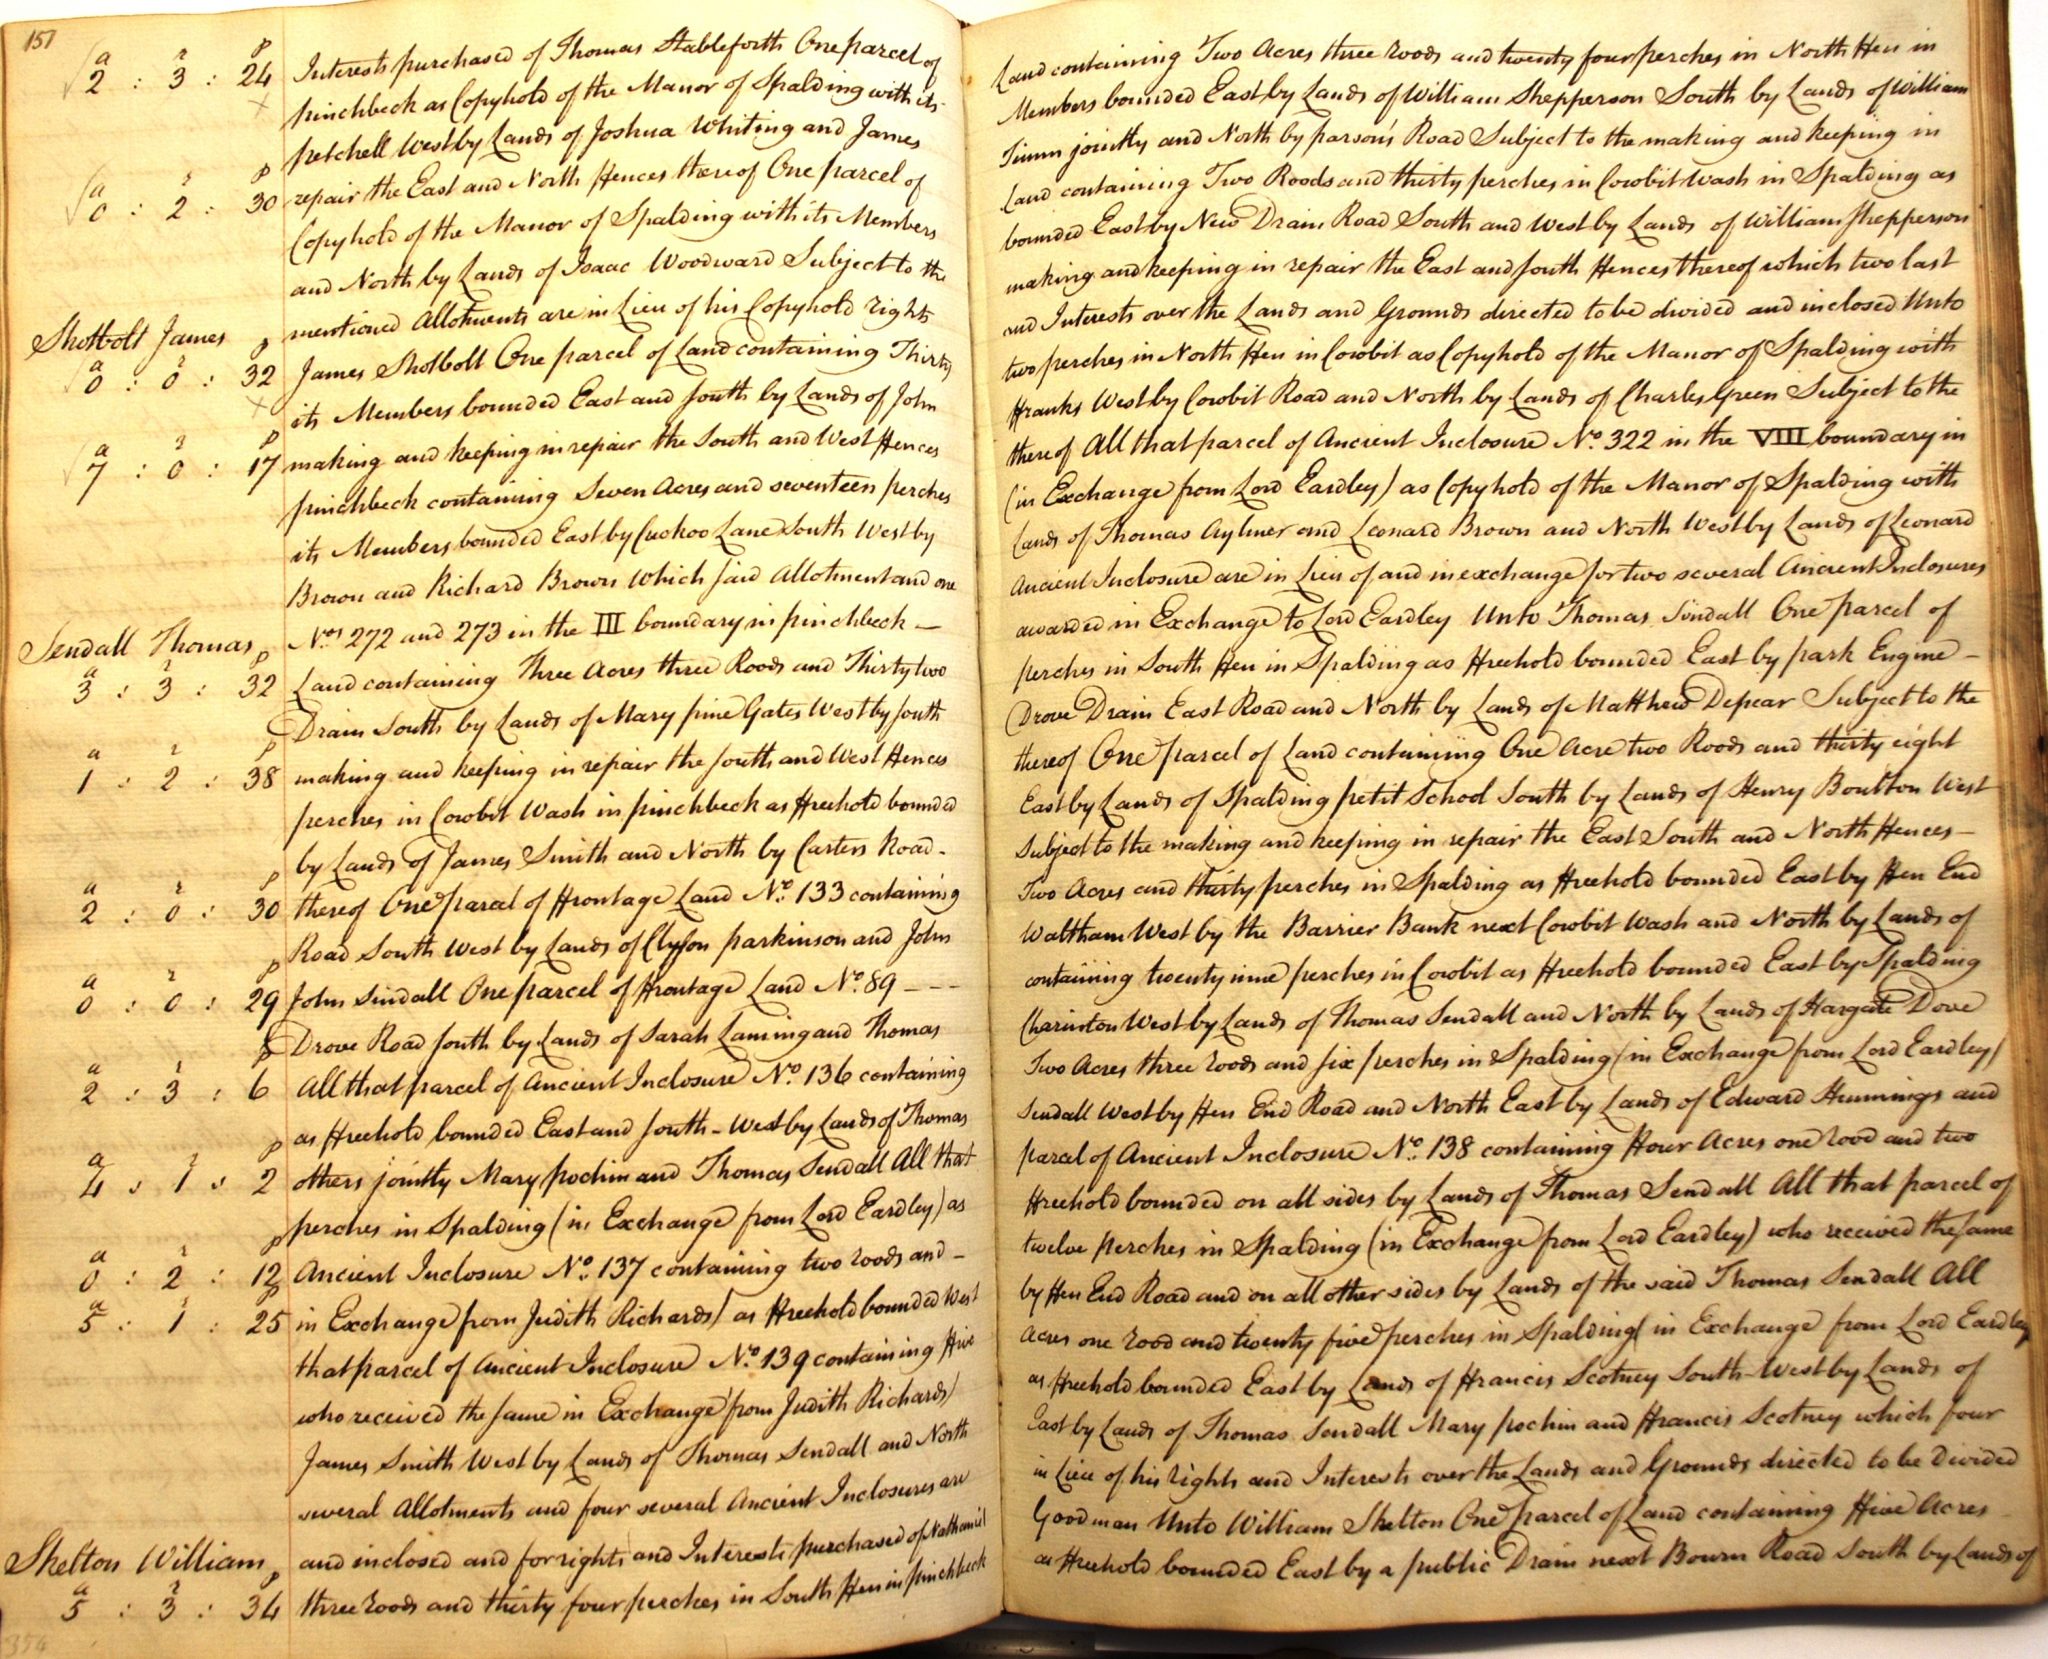 151
a r p
2 : 3 : 24 Interests purchased of Thomas Stableforth One parcel of Land containing Two Acres three roods and twenty four perches in North Fen in
pinchbeck as Copyhold of the Manor of Spalding with its Members bounded East by Lands of William Shepperson South by Lands of William
petchell West by Lands of Joshua Whiting and James Timm jointly and North by parson's Road Subject to the making and keeping in
a r p
0 : 2 : 30 repair the East and North Fences thereof One parcel of Land containing Two Roods and thirty perches in Cowbit Wash in Spalding as
Copyhold of the Manor of Spalding with its Members bounded East by New Drain Road South and West by Lands of William Shepperson
and North by Lands of Isaac Woodward Subject to the making and keeping in repair the East and South Fences thereof which two last
mentioned Allotments are in Lieu of his Copyhold rights and Interests over the Lands and Grounds directed to be divided and inclosed Unto
Shotbolt James
a r p
0 : 0 : 32 James Shotbolt One parcel of Land containing Thirty two perches in North Fen in Cowbit as Copyhold of the Manor of Spalding with
its Members bounded East and South by Lands of John Franks West by Cowbit Road and North by Lands of Charles Green Subject to the
a r p
7 : 0 : 17 making and keeping in repair the South and West Fences thereof All that parcel of Ancient Inclosure No. 322 in the VIII boundary in
pinchbeck containing Seven Acres and seventeen perches (in Exchange from Lord Eardley) as Copyhold of the Manor of Spalding with
its Members bounded East by Cuckoo Lane South West by Lands of Thomas Aylmer and Leonard Brown and North West by Lands of Leonard
Brown and Richard Brown which said Allotment and one Ancient Inclosure are in Lieu of and in exchange for two several Ancient Inclosures
Nos. 272 and 273 in the III boundary in pinchbeck — awarded in Exchange to Lord Eardley Unto Thomas Sendall One parcel of
Sendall Thomas
a r p
3 : 3 : 32 Land containing Three Acres three Roods and Thirty two perches in South Fen in Spalding as Freehold bounded East by park Engine —
Drain South by Lands of Mary pine Gates West by South Drove Drain East Road and North by Lands of Matthew Depear Subject to the
a r p
1 : 2 : 38 making and keeping in repair the South and West Fences thereof One parcel of Land containing One Acre two Roods and thirty eight
perches in Cowbit Wash in pinchbeck as Freehold bounded East by Lands of Spalding petit School South by Lands of Henry Boulton West
by Lands of James Smith and North by Carters Road - Subject to the making and keeping in repair the East South and North Fences —
a r p
2 : 0 : 30 thereof One parcel of Frontage Land No. 133 containing Two Acres and thirty perches in Spalding as Freehold bounded East by Fen End
Road South West by Lands of Clyson parkinson and John Waltham West by the Barrier Bank next Cowbit Wash and North by Lands of
a r p
0 : 0 : 29 John Sendall One parcel of Frontage Land No. 89 - - - containing twenty nine perches in Cowbit as Freehold bounded East by Spalding
Drove Road South by Lands of Sarah Laming and Thomas Charinton West by Lands of Thomas Sendall and North by Lands of Hargate Dove
a r p
2 : 3 : 6 All that parcel of Ancient Inclosure No. 136 containing Two Acres three roods and six perches in Spalding (in Exchange from Lord Eardley)
as Freehold bounded East and South - West by Lands of Thomas Sendall West by Fen End Road and North East by Lands of Edward Hemmings and
a r p
4 : 1 : 2 others jointly Mary pochin and Thomas Sendall All that parcel of Ancient Inclosure No. 138 containing Four Acres one rood and two
perches in Spalding (in Exchange from Lord Eardley) as Freehold bounded on all sides by Lands of Thomas Sendall All that parcel of
a r p
0 : 2 : 12 Ancient Inclosure No. 137 containing two roods and — twelve perches in Spalding (in Exchange from Lord Eardley) who received the same
a r p
5 : 1 : 25 in Exchange from Judith Richards) as Freehold bounded West by Fen End Road and on all other sides by Lands of the said Thomas Sendall All
that parcel of Ancient Inclosure No. 139 containing Five Acres one rood and twenty five perches in Spalding (in Exchange from Lord Eardley
who received the same in Exchange from Judith Richards) as Freehold bounded East by Lands of Francis Scotney South-West by Lands of
James Smith West by Lands of Thomas Sendall and North East by Lands of Thomas Sendall Mary pochin and Francis Scotney which four
several Allotments and four several Ancient Inclosures are in Lieu of his rights and Interests over the Lands and Grounds directed to be divided
and inclosed and for rights and Interests purchased of Nathaniel Goodman Unto William Shelton One parcel of Land containing Five Acres
Shelton William
a r p
5 : 3 : 34 three roods and thirty four perches in South Fen in pinchbeck as Freehold bounded East by a public Drain next Bourn Road South by Lands of
354